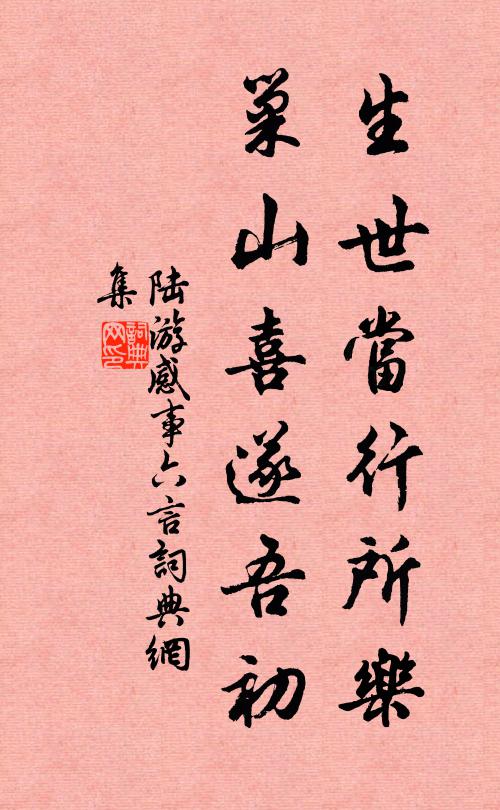 生世當行所樂
巢山喜遂吾初
陸游感事六言詞典網
集
詞典
网印